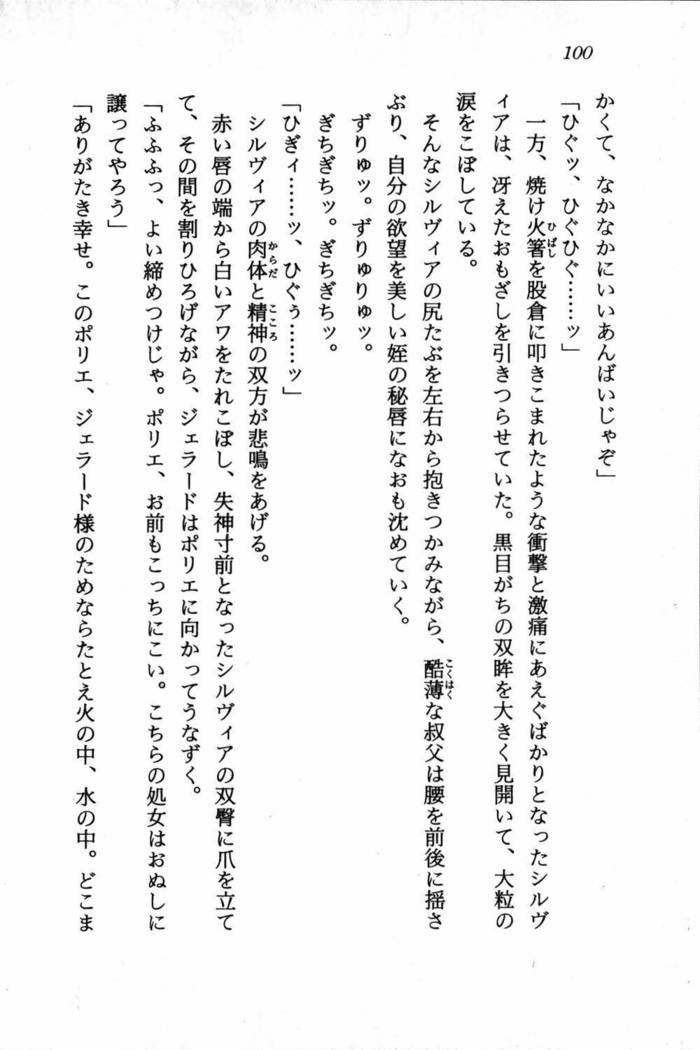 100
かくて、なかなかにいいあんばいじゃぞ」
「ひぐッ、ひぐひぐ……ッ」
一方、焼け火箸を股倉に叩きこまれたような衝撃と激痛にあえぐばかりとなったシルヴ
ィアは、冴えたおもざしを引きつらせていた。黒目がちの双眸を大きく見開いて、大粒の
涙をこぼしている。
そんなシルヴィアの尻たぶを左右から抱きつかみながら、酷薄な叔父は腰を前後に揺さ
ぶり、自分の欲望を美しい姪の秘唇になおも沈めていく。
ずりゅッ。ずりゅりゅッ。
ぎちぎちッ。ぎちぎちッ。
「ひぎィ……ッ、ひぐぅ……ッ」
シルヴィアの肉体と精神の双方が悲鳴をあげる。
赤い唇の端から白いアワをたれこぼし、失神寸前となったシルヴィアの双臀に爪を立て
て、その間を割りひろげながら、ジェラードはポリエに向かってうなずく。
「ふふふっ、よい締めつけじゃ。ポリエ、お前もこっちにこい。こちらの処女はおぬしに
譲ってやろう」
「ありがたき幸せ。このポリエ、ジェラード様のためならたとえ火の中、水の中。どこま